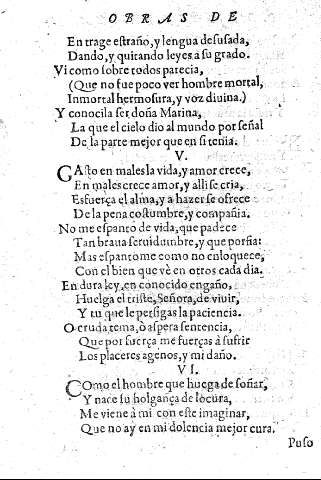 OBRAS DE
En trage estraño, y lengua desusada,
Dando, y quitando leyes a su grado.
Vi como sobre todos parecia,
(Que no fue poco ver hombre mortal,
Inmortal hermosura, y voz diuina.)
Y conocila ser doña Marina,
La que el cielo dio al mundo por señal
De la parte mejor que en si tenia.
V.
GAsto en males la vida, y amor crece,
En males crece amor, y alli se cria,
Esfuerça el alma, y a hazer se ofrece
De la pena costumbre, y compañia.
No me espanto de vida, que padece
Tan braua seruidumbre, y que porfia:
Mas espantome como no enloquece,
Con el bien que vè en otros cada dia.
En dura ley, en conocido engaño,
Huelga el triste, Señora, de viuir,
Y tu que le persigas la paciencia.
O cruda tema, ò aspera sentencia,
Que por fuerça me fuerças à sufrir
Los placeres agenos, y mi daño.
VI.
COmo el hombre que huega de soñar,
Y nace su holgança de locura,
Me viene à mi con este imaginar,
Que no ay en mi dolencia mejor cura.
Puso